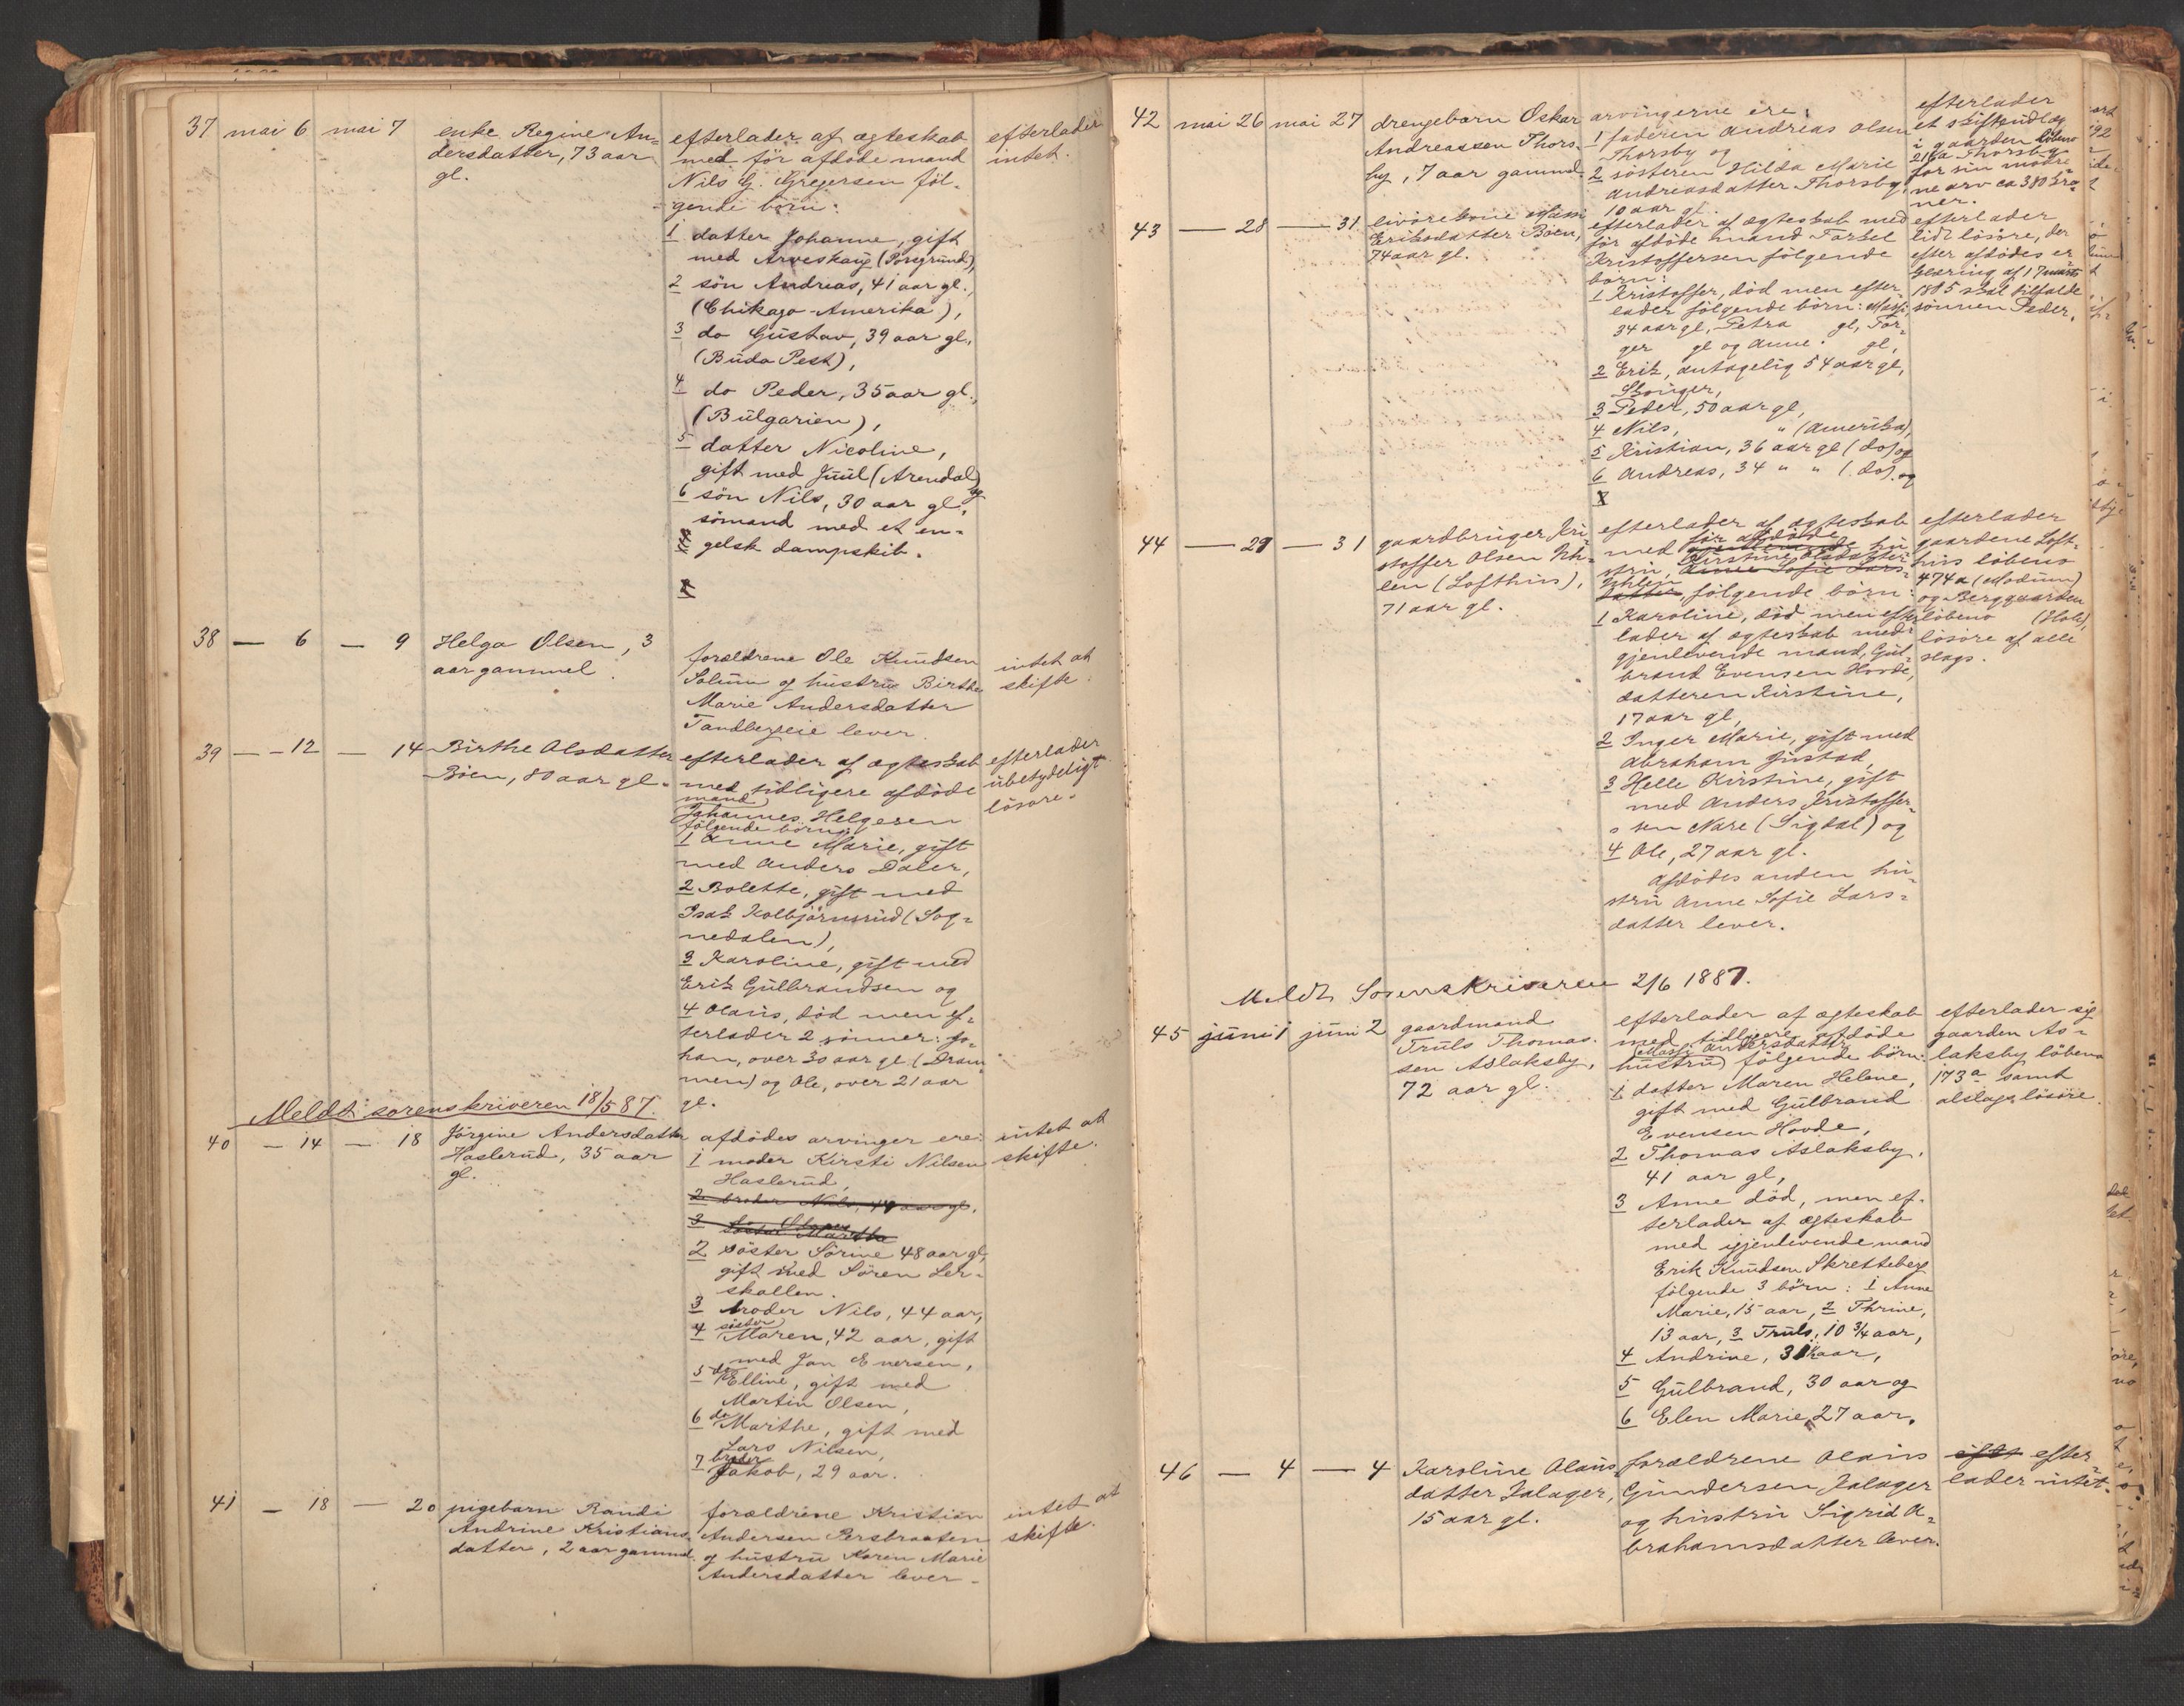 37 mai 6 mai 7 enke Regine An-
dersdatter, 73 aar
gl.
efterlader af ægteskab
med för afdöde mand
Nils G. Gregersen föl-
gende börn:
1 datter Johanne, gift
med Arveskaug (Porsgrund),
2 sön Andreas, 41 aar gl.,
(Chikago-Amerika),
3 do Gustav, 39 aar gl.
(Buda Pest),
4 do Peder, 35 aar gl.,
(Bulgarien),
5 datter Nicoline,
gift med Juul (Arendal)
og
6 sön Nils, 30 aar gl.,
sömand med et en-
gelsk dampskib.
efterlader
intet.
38 — 6 — 9 Helga Olsen, 3
aar gammel.
forældrene Ole Knudsen
Solum og hustru Birthe
Marie Andersdatter
Tandbergeie lever.
intet at
skifte.
39 — 12 — 14 Birthe Olsdatter
Böen, 80 aar gl.
efterlader af ægteskab
med tidligere afdöde
mand
Johannes Helgesen
fölgende börn:
1 Anne Marie, gift
med Anders Daler,
2 Bolette, gift med
Isak Kolbjörnsrud (Sog-
nedalen),
3 Karoline, gift med
Erik Gulbrandsen og
4 Olaus, död men ef-
terlader 2 sönner: Jo-
han, over 30 aar gl. (Dram-
men) og Ole, over 21 aar
gl.
efterlader
ubetydeligt
lösöre.
Meldt sorenskriveren 18/5 87.
40 — 14 — 18 Jörgine Andersdatter
Haslerud, 35 aar
gl.
afdödes arvinger ere:
1 moder Kirsti Nilsen
Haslerud,
2 broder Nils, 44 aar gl.
3 söster Marthe
2 söster Sörine 48 aar gl,
gift med Sören Ler-
skallen.
3 broder Nils, 44 aar,
4 söster Maren, 42 aar, gift
med Jan Eversen,
5 do Elline, gift med
Martin Olsen,
6 do Marthe, gift med
Lars Nilsen,
7 broder Jakob, 29 aar.
intet at
skifte.
41 — 18 — 20 pigebarn Randi
Andrine Kristians-
datter, 2 aar gammel.
forældrene Kristian
Andersen Persbraaten
og hustru Karen Marie
Andersdatter lever.
intet at
skifte.
42 mai 26 mai 27 drengebarn Oskar
Andreassen Thors-
by, 7 aar gammel.
arvingerne ere:
1 faderen Andreas Olsen
Thorsby og
2 sösteren Hilda Marie
Andreasdatter Thorsby,
10 aar gl.
efterlader
et skifteudlæg
i gaarden löbeno
216a Thorsby
for sin mödre-
ne arv ca 380 kro-
ner.
43 — 28 — 31 Massi
Eriksdatter Böen,
74 aar gl.
efterlader af ægteskab med
för afdöde mand Torkel
Kristoffersen fölgende
börn:
1 Kristoffer, död men efter-
lader fölgende börn: Massi,
34 aar gl, Petra gl, Tor-
ger gl og Anne gl,
2 Erik, antagelig 54 aar gl,
3 Peder, 50 aar gl,
4 Nils, " (Amerika),
5 Kristian, 36 aar gl (do) og
6 Andreas, 34 " " (do). og
efterlader
lidt lösöre, der
efter afdödes er-
klæring af 17 marts
1885 skal tilfalde
sönnen Peder.
44 — 29 — 31 gaardbruger Kri-
stoffer Olsen Uh-
len (Lofthus),
71 aar gl.
efterlader af ægteskab
för afdöde
med gjenlevende hu-
Kirstine Olsdatter
stru, Anne Sofie Lars-
Uhlen
datter fölgende börn:
1 Karoline, död men efter-
lader af ægteskab med
gjenlevende mand, Gul-
brand Evensen Hovde,
datteren Kirstine,
17 aar gl,
2 Inger Marie, gift med
Abraham Gustad,
3 Helle Kirstine, gift
med Anders Kristoffer-
sen Nare (Sigdal) og
4 Ole, 27 aar gl.
Afdödes anden hu-
stru Anne Sofie Lars-
datter lever.
efterlader
gaardene Loft-
hus löbeno
474a (Modum)
og Berggaarden
löbeno (Hole),
lösöre af alle
slags.
Meldt Sorenskriveren 2/6 1887.
45 juni 1 juni 2 gaardmand
Truls Thomas-
sen Aslaksby,
72 aar gl.
efterlader af ægteskab
med tidligere afdöde
Massi Andersdatter
hustru fölgende börn:
1 datter Maren Helene,
gift med Gulbrand
Evensen Hovde,
2 Thomas Aslaksby,
41 aar gl,
3 Anne död, men ef-
terlader af ægteskab
med igjenlevende mand
Erik Knudsen Skretteberg
fölgende 3 börn: 1 Anne
Marie, 15 aar, 2 Thrine,
13 aar, 3 Truls, 10 3/4 aar,
4 Andrine, aar,
5 Gulbrand, 30 aar og
6 Elen Marie, 27 aar.
efterlader sig
gaarden As-
laksby löbeno
173a samt
alslags lösöre.
46 — 4 — 4 Karoline Olaus-
datter Jalager,
15 aar gl.
forældrene Olaus
Gundersen Jalager
og hustru Sigrid A-
brahamsdatter lever.
efter
lader intet.